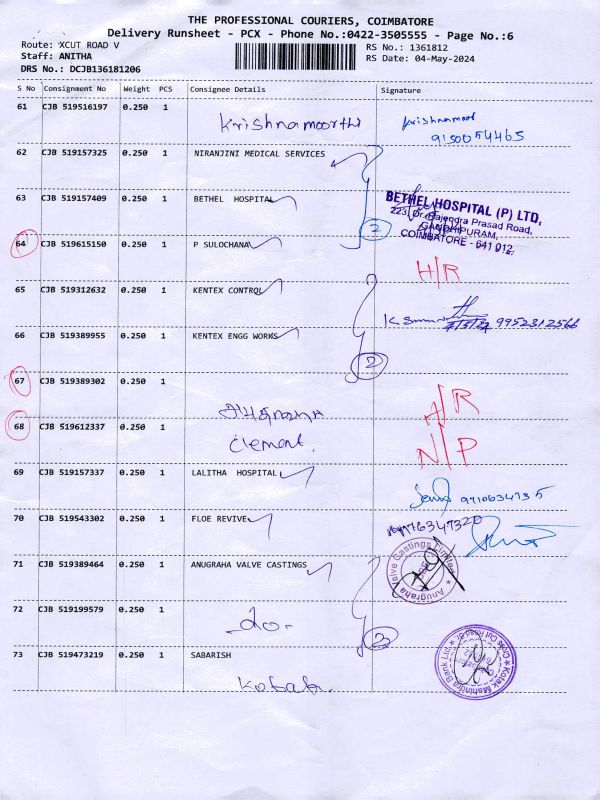 THE PROFESSIONAL COURIERS, COIMBATORE
Delivery Runsheet - PCX - Phone No.:0422-3505555 - Page No.:6
Route: XCUT ROAD V
RS No.: 1361812
Staff: ANITHA
RS Date: 04-May-2024
DRS No.: DCJB136181206
S No Consignment No Weight PCS Consignee Details Signature
61 CJB 519516197 0.250 1
Krishnamoorthi
9150054465
62 CJB 519157325 0.250 1 NIRANJINI MEDICAL SERVICES
63 CJB 519157409 0.250 1 BETHEL HOSPITAL
BETHEL HOSPITAL (P) LTD,
223, Dr. Rajendra Prasad Road,
GANDHIPURAM,
COIMBATORE - 641 012.
2
64 CJB 519615150 0.250 1 P SULOCHANA
H/R
65 CJB 519312632 0.250 1 KENTEX CONTROL
9952312566
66 CJB 519389955 0.250 1 KENTEX ENGG WORKS
2
67 CJB 519389302 0.250 1
A/R
68 CJB 519612337 0.250 1
Clement.
N/P
69 CJB 519157337 0.250 1 LALITHA HOSPITAL
9710634735
70 CJB 519543302 0.250 1 FLOE REVIVE
9716347320
71 CJB 519389464 0.250 1 ANUGRAHA VALVE CASTINGS
Anugraha Valve Castings Limited
72 CJB 519199579 0.250 1
-do-
2
73 CJB 519473219 0.250 1 SABARISH
Kotak Mahindra Bank Ltd.